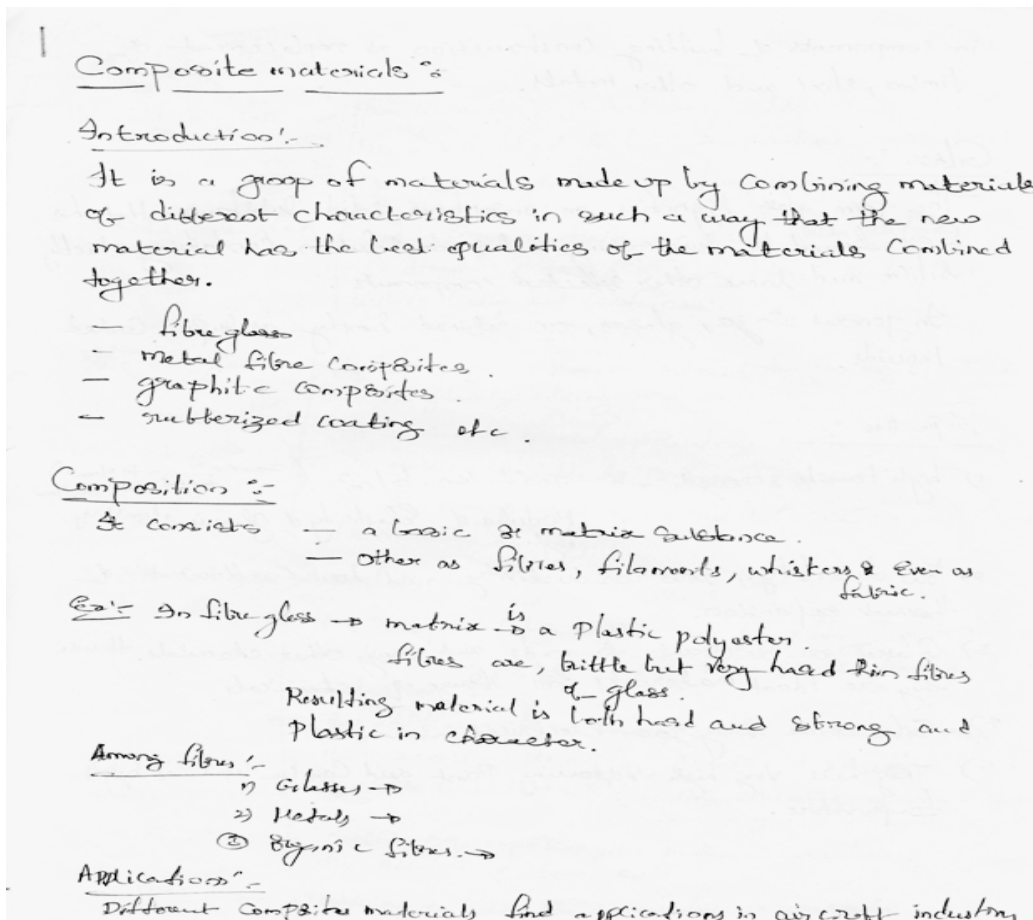 1
Composite materials :-
Introduction :-
It is a group of materials made up by Combining materials
of different characteristics in such a way that the new
material has the best qualities of the materials Combined
together.
— fibre glass
- metal fibre composites.
— graphite composites.
— rubberized coating etc.
Composition :-
It consists — a basic or matrix Substance.
— other as fibres, filaments, whiskers & even as
fabric.
Ex:- In fibre glass → matrix is a plastic polyester
fibres are, brittle but very hard thin fibres
of glass.
Resulting material is both hard and strong and
plastic in character.
Among fibres :-
1) Glasses →
2) Metals →
③ Organic fibres. →
Applications :-
Different composites materials find applications in aircraft industry,